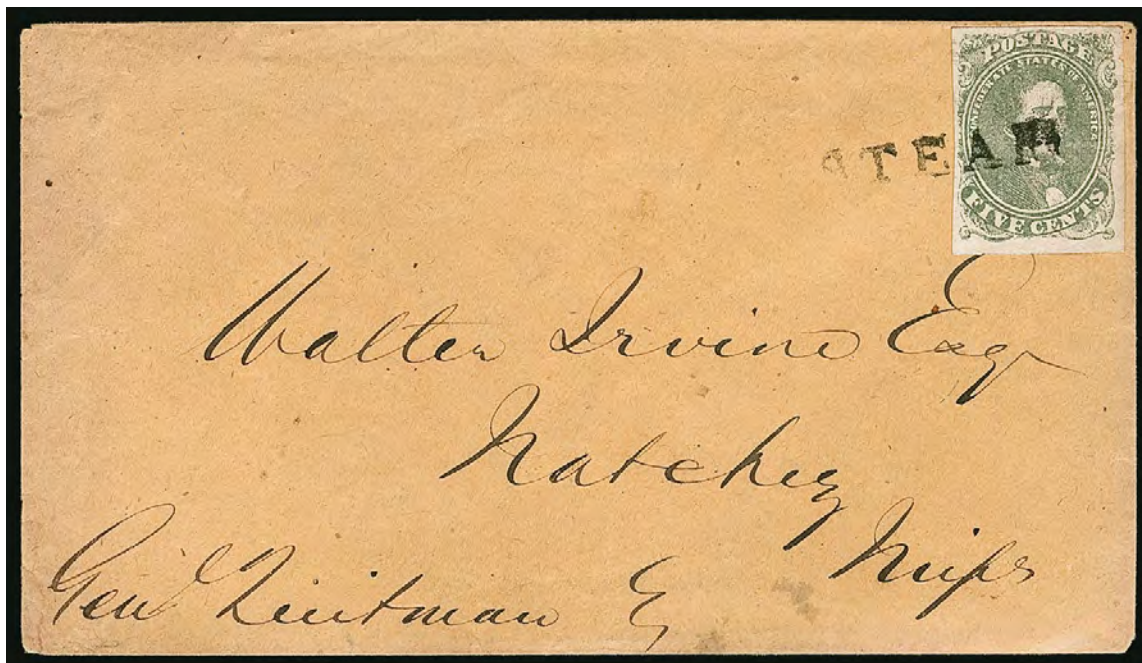 POSTAGE
CONFEDERATE STATES OF AMERICA
STEAM
FIVE CENTS
Walter Irvine Esq
Natchez
Miſs
Genl Quitman